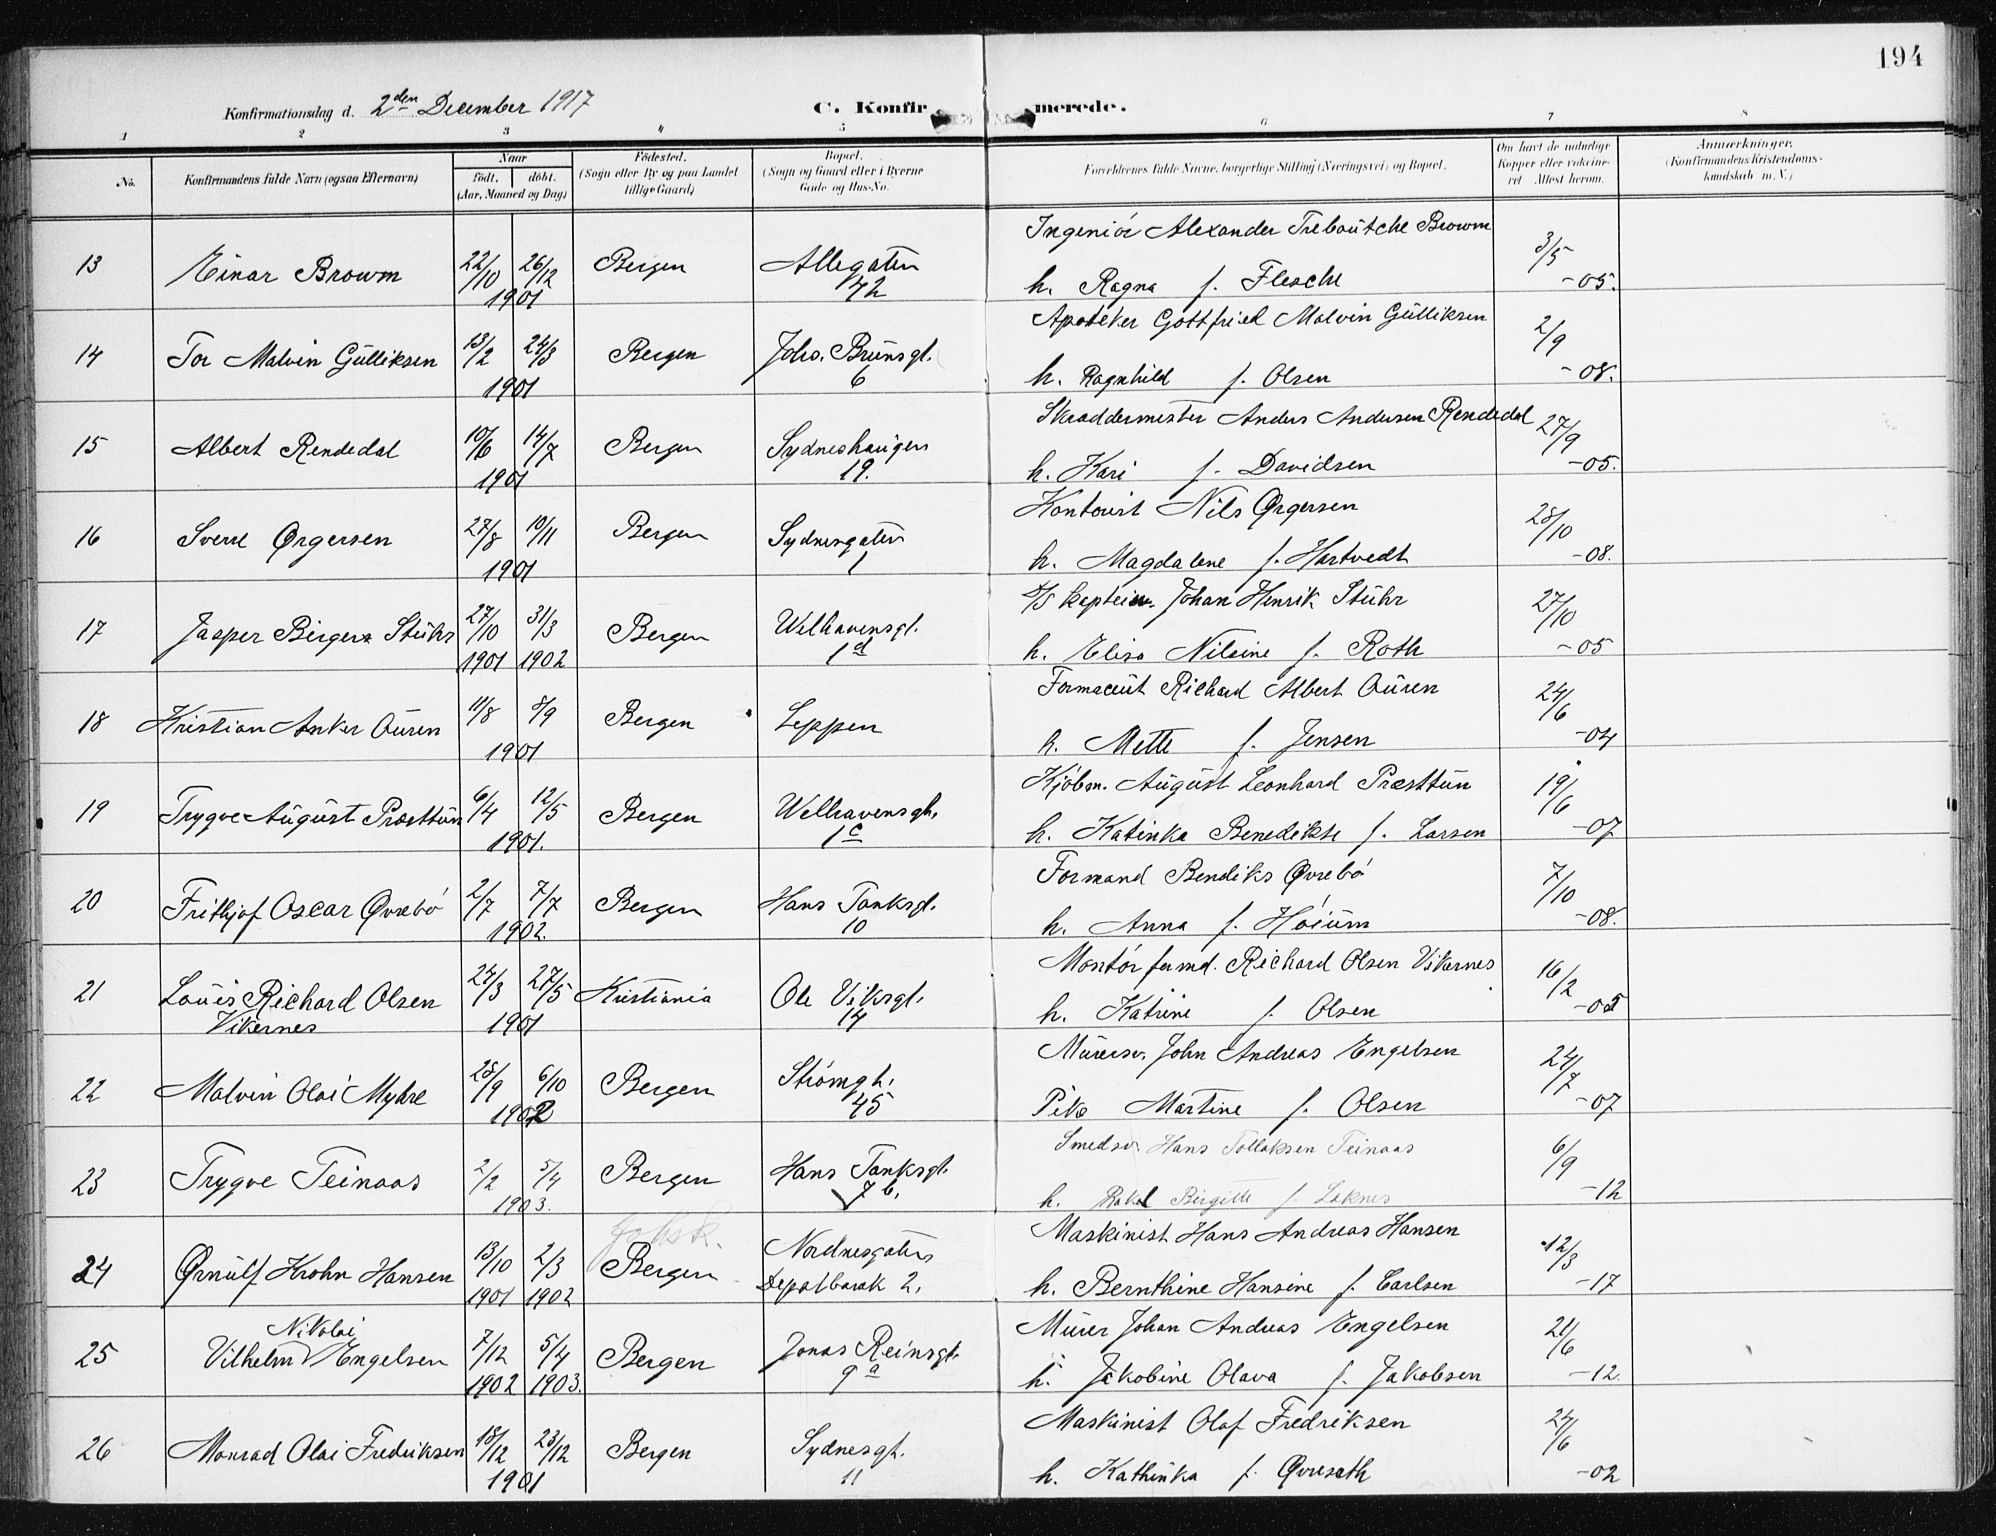 194
Konfirmationsdag d. 2den December 1917
C. Konfirmerede.
1 2 3 4 5 6 7 8
No.
Konfirmandens fulde Navn (ogsaa Efternavn)
Naar
födt. döbt.
(Aar, Maaned og Dag)
Födested.
(Sogn eller By og paa Landet
tillige Gaard)
Bopæl.
(Sogn og Gaard eller i Byerne
Gade og Hus-No.
Forældrenes fulde Navne, borgerlige Stilling (Næringsvei) og Bopæl.
Om havt de naturlige
Kopper eller vaksine-
ret Attest herom.
Anmærkninger.
(Konfirmandens Kristendoms-
kundskab m. V.)
Ingeniör Alexander Brown
13 Einar Brown 22/10 26/12 Bergen Allegaten 3/5
1901 72 h. Ragna f. Flesche -05.
Apoteker Gottfried Malvin Gulliksen
14 Tor Malvin Gulliksen 13/2 24/3 Bergen Johs. Brunsgt. 2/9
1901 6 h. Ragnhild f. Olsen -08.
Skræddermester Anders Andersen Rendedal
15 Albert Rendedal 10/6 14/7 Bergen Sydneshaugen 27/9
1901 19. h. Kari f. Davidsen -05.
Kontorist Nils Ørgersen
16 Sverre Ørgersen 27/8 10/11 Bergen Sydnesgaten 28/10
1901 1 h. Magdalene f. Hartvedt -08.
D/S kaptein Johan Henrik Stuhr
17 Jasper Birger Stuhr 27/10 31/3 Bergen Welhavensgt. 27/10
1901 1902 1d h. Elisa Nilsine f. Roth -05
Richard Albert Auren
18 Kristian Anker Auren 11/8 8/9 Bergen Leppen 24/6
1901 h. Mette f. Jensen -04
Kjöbm. August Leonhard Præsttun
19 Trygve August Præsttun 6/4 12/5 Bergen Welhavensgt. 19/6
1901. 1c h. Katinka Benedikte f. Larsen -07
Formand Bendiks Øvrebö
20 Frithjof Oscar Øvrebö 2/7 7/7 Bergen Hans Tanksgt. 7/10
1902. 10 h. Anna f. Höium -08.
Montör formd. Richard Olsen Vikernes
21 Louis Richard Olsen 24/3 27/5 Kristiania Ole Viksgt. 16/2
Vikernes 1901 14 h. Katrine f. Olsen -05
Murersv. John Andreas Engelsen
22 Malvin Olai Myhre 28/9 6/10 Bergen Strømgt. 24/7
1902 45 Pike Martine f. Olsen -07
Smedsv. Hans Tollaksen Teinaas
23 Trygve Teinaas 2/2 5/4 Bergen Hans Tanksgt. 6/9
1903. 7 b. h. Rakel Birgitte f. Loknes -12
Johsk.
Maskinist Hans Andreas Hansen
24 Ørnulf Krohn Hansen 13/10 2/3 Bergen Nordnesgaten 12/3
1901 1902 Depotbarak 2. h. Bernthine Hansine f. Carlsen -17
Nikolai
Murer Johan Andreas Engelsen
25 Vilhelm Engelsen 7/12 5/4 Bergen Jonas Reinsgt. 21/6
1902 1903. 9a h. Jakobine Olava f. Jakobsen -12.
Maskinist Olaf Fredriksen
26 Monrad Olai Fredriksen 18/12 23/12 Bergen Sydnesgt. 24/6
1901 11 h. Kathinka f. Øvreseth -02